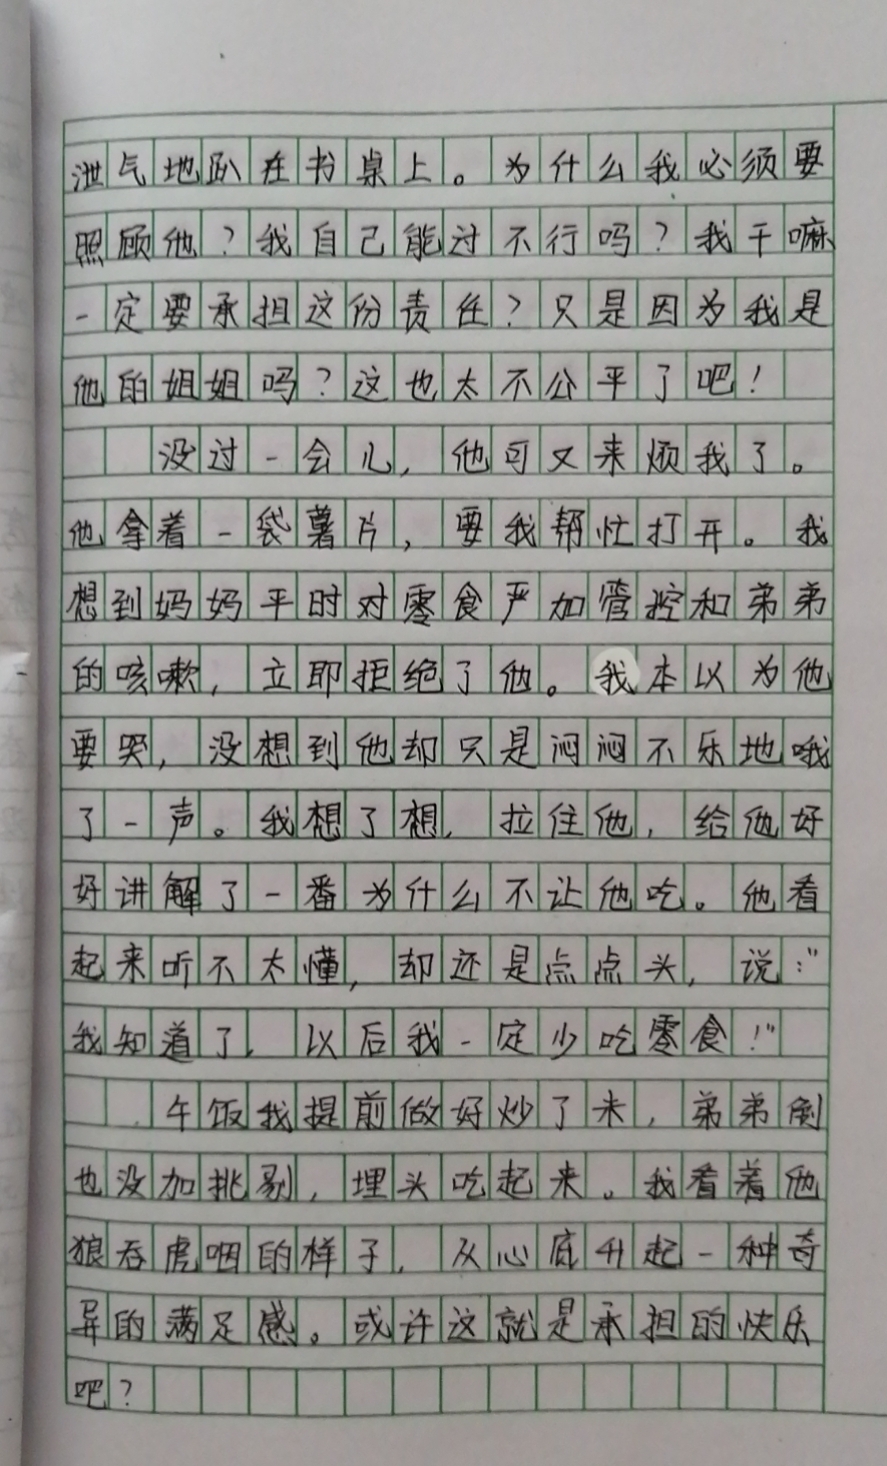 泄气地趴在书桌上。为什么我必须要
照顾他？我自己能过不行吗？我干嘛
一定要承担这份责任？只是因为我是
他的姐姐吗？这也太不公平了吧！
没过一会儿，他可又来烦我了。
他拿着一袋薯片，要我帮忙打开。我
想到妈妈平时对零食严加管控和弟弟
的咳嗽，立即拒绝了他。我本以为他
要哭，没想到他却只是闷闷不乐地哦
了一声。我想了想，拉住他，给他好
好讲解了一番为什么不让他吃。他看
起来听不太懂，却还是点点头，说：“
我知道了，以后我一定少吃零食！”
午饭我提前做好炒了米，弟弟倒
也没加挑剔，埋头吃起来。我看着他
狼吞虎咽的样子，从心底升起一种奇
异的满足感。或许这就是承担的快乐
吧？